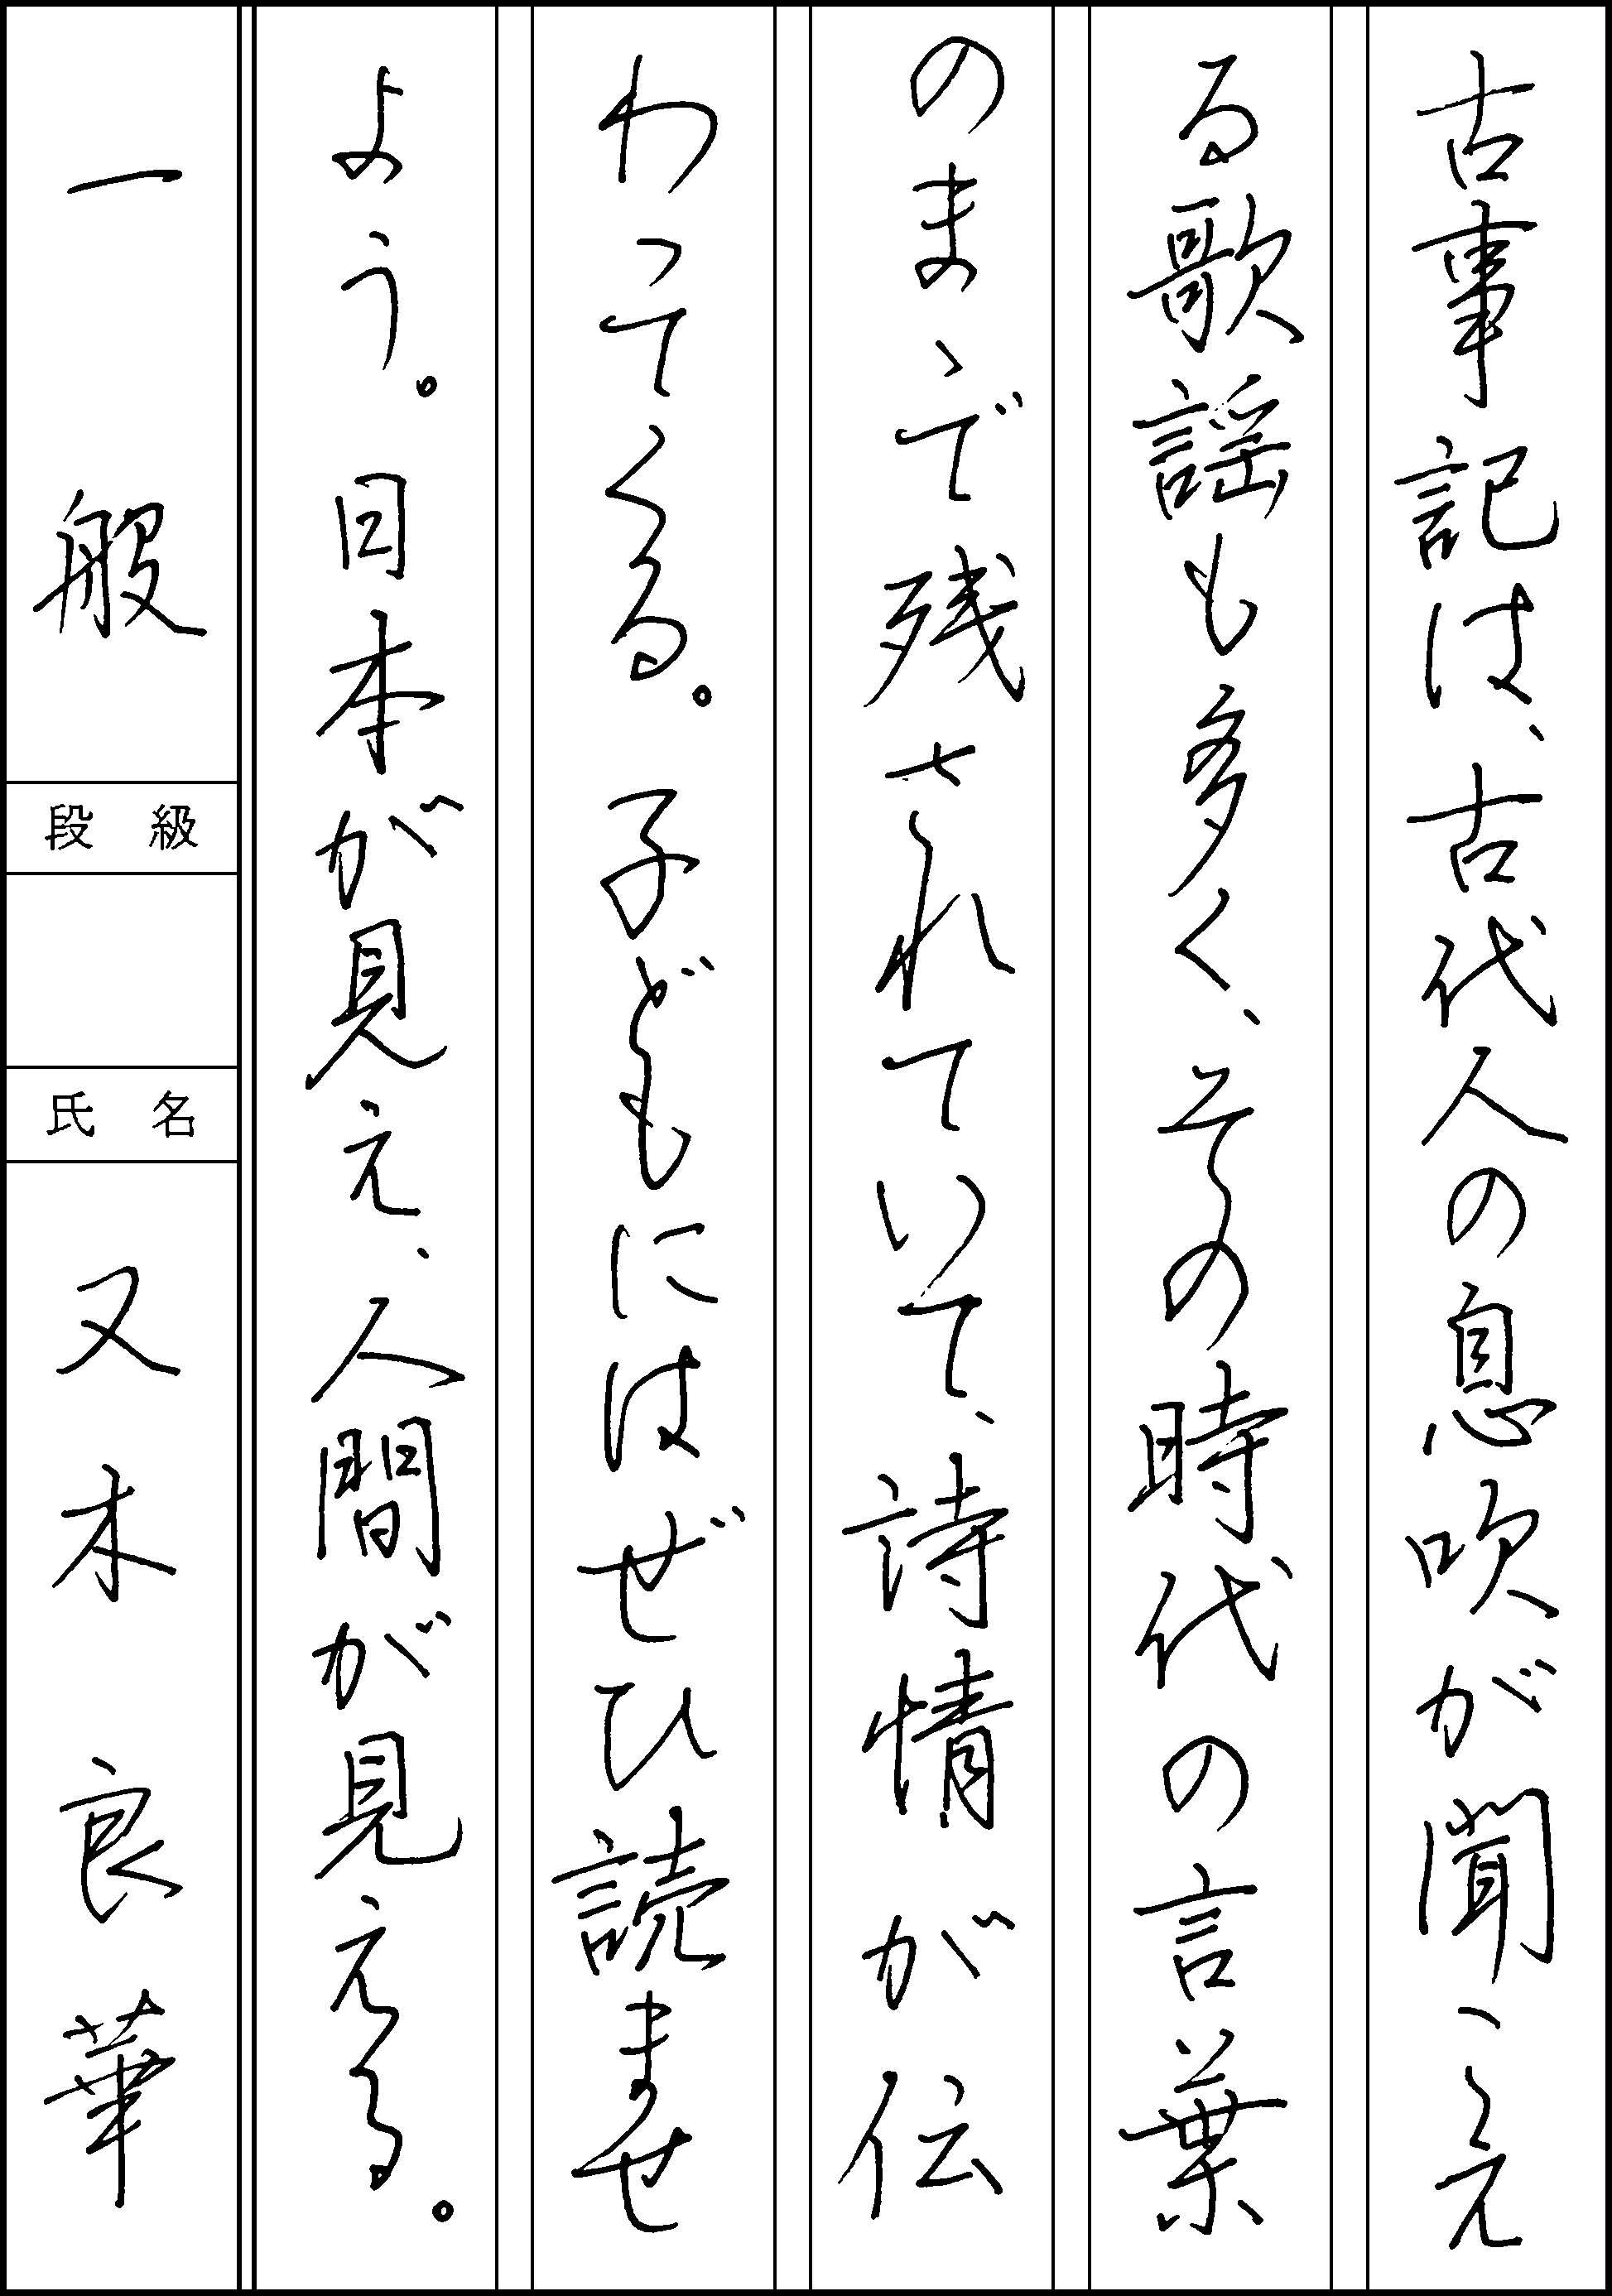 古事記は、古代人の息吹が聞こえ
る歌謡も多く、その時代の言葉
のまゝで残されていて、詩情が伝
わってくる。子どもにはぜひ読ませ
よう。日本が見え、人間が見える。
一般
段級
氏名
又木良華